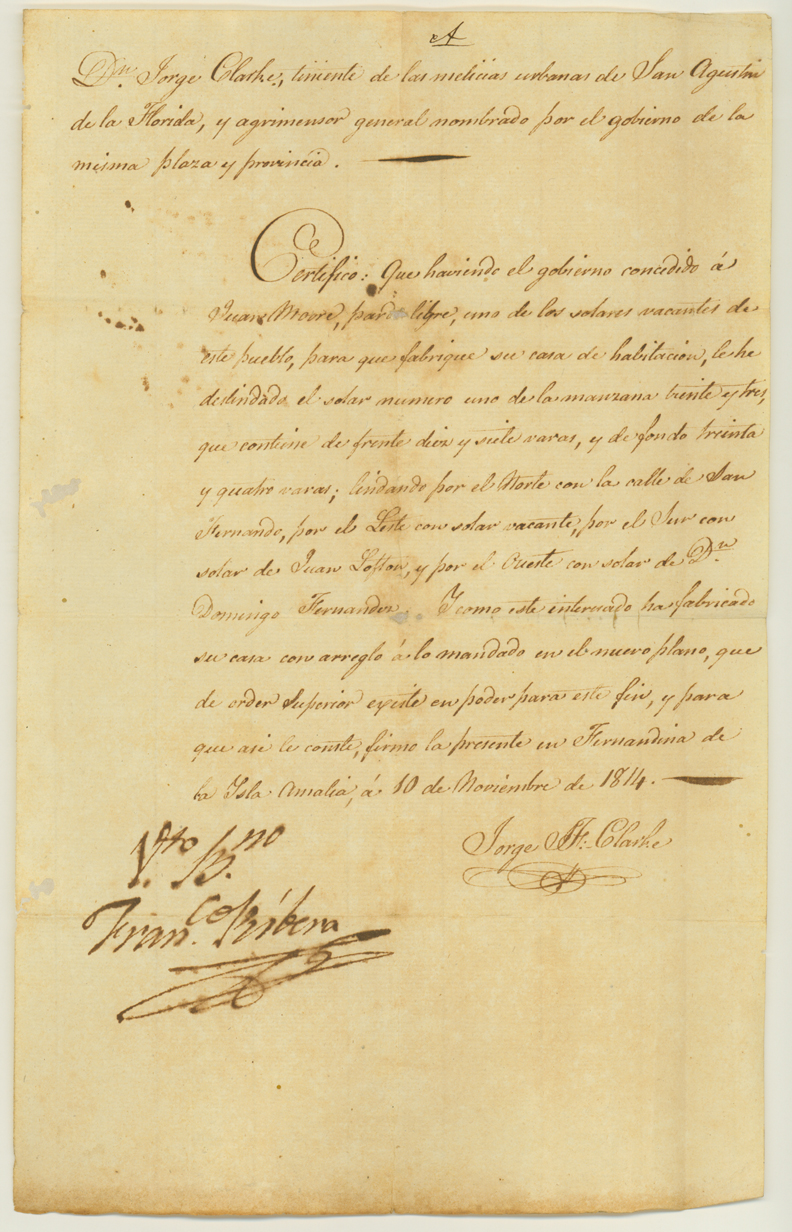 A
Dn. Jorge Clarke, tiniente de las melicias urbanas de San Agustin
de la Florida, y agrimensor general nombrado por el gobierno de la
misma plaza y provincia.
Certifico: Que haviendo el gobierno concedido á
Juan Moore, pardo libre, uno de los solares vacantes de
este pueblo, para que fabrique su casa de habitacion, le he
deslindado el solar numero uno de la manzana treinte y tres,
que contiene de frente diez y siete varas, y de fondo treinta
y quatro varas; lindando por el Norte con la calle de San
Fernando, por el Leste con solar vacante, por el Sur con
solar de Juan Lofton, y por el Oueste con solar de Dn.
Domingo Fernandez. Y como este interesado ha fabricado
su casa con arreglo á lo mandado en el nuevo plano, que
de orden Superior existe en poder para este fin, y para
que asi le conste, firmo la presente en Fernandina de
la Isla Amalia, á 10 de Noviembre de 1814.
Jorge J. F. Clarke
Vto. Bno.
Franco. Ribera